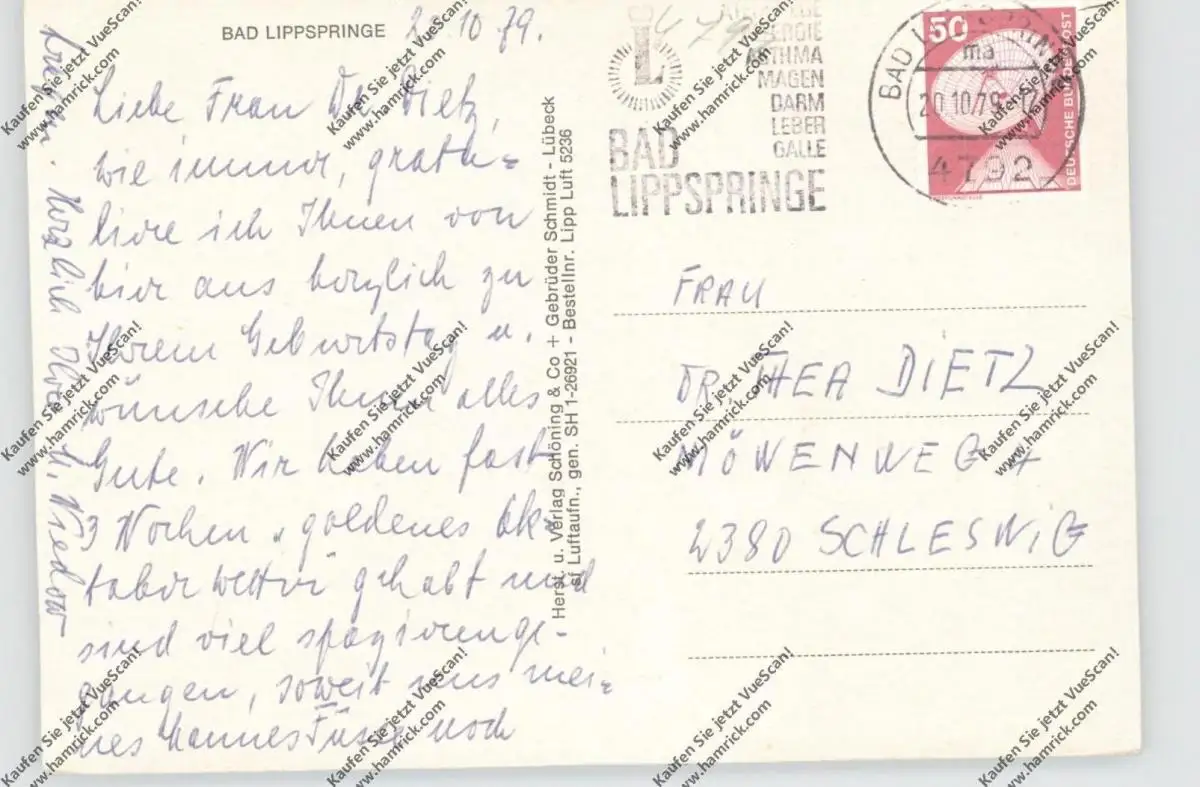 BAD LIPPSPRINGE
10 79.
Liebe Frau Dr. Dietz,
wie immer, gratu=
liere ich Ihnen von
hier aus herzlich zu
Ihrem Geburtstag u.
wünsche Ihnen alles
Gute. Wir haben fast
3 Wochen "goldenes Ok=
toberwetter gehabt und
sind viel spazierenge-
gangen, soweit uns mei=
nes Mannes Füsse noch
tragen. Herzlich Ihre H. Niedlow
Herst. u. Verlag Schöning & Co + Gebrüder Schmidt - Lübeck
sf Luftaufn., gen. SH 1-26921 - Bestellnr. Lipp Luft 5236
ASTHMA
MAGEN
DARM
LEBER
GALLE
BAD
LIPPSPRINGE
BAD
ma
20.10.79
4792
50
DEUTSCHE BUNDESPOST
FRAU
DR. THEA DIETZ
MÖWENWEG
2380 SCHLESWIG
Kaufen Sie jetzt VueScan!
www.hamrick.com